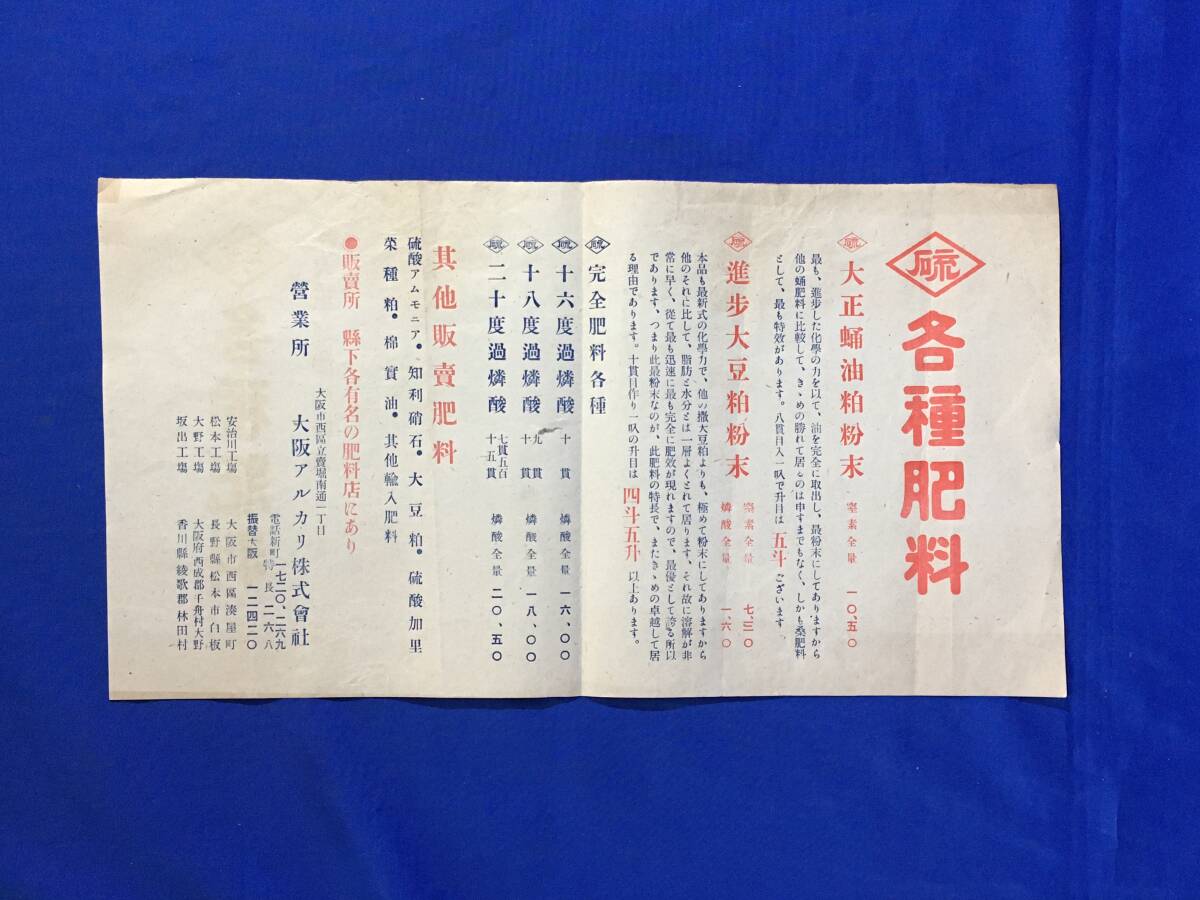 硫 各種肥料
硫 大正蛹油粕粉末 窒素全量 一〇、五〇
最も、進步した化學の力を以て、油を完全に取出し、最粉末にしてありますから
他の蛹肥料に比較して、きゝめの勝れて居るのは申すまでもなく、しかも桑肥料
として、最も特效があります。八貫目入一叺で升目は 五斗 ございます
硫 進步大豆粕粉末 窒素全量 七、三〇
燐酸全量 一、六〇
本品も最新式の化學力で、他の撒大豆粕よりも、極めて粉末にしてありますから
他のそれに比して、脂肪と水分とは一層よくとれて居ります、それ故に溶解が非
常に早く、從て最も迅速に最も完全に肥效が現れますので、最優として誇る所以
であります、つまり此最粉末なのが、此肥料の特長で、またきゝめの卓越して居
る理由であります。十貫目作り一叺の升目は 四斗五升 以上あります。
硫 完全肥料各種
硫 十六度過燐酸 十貫 燐酸全量 一六、〇〇
硫 十八度過燐酸 九貫 十貫 燐酸全量 一八、〇〇
硫 二十度過燐酸 七貫五百 十五貫 燐酸全量 二〇、五〇
其他販賣肥料
硫酸アムモニア● 知利硝石● 大豆粕● 硫酸加里
菜種粕● 棉實油● 其他輸入肥料
●販賣所 縣下各有名の肥料店にあり
大阪市西區立賣堀南通一丁目
營業所 大阪アルカリ株式會社
電話新町 一七二〇、二六九
特長 二六八
振替大阪 一二四二〇
安治川工場 大阪市西區湊屋町
松本工場 長野縣松本市白板
大野工場 大阪府西成郡千舟村大野
坂出工場 香川縣綾歌郡林田村